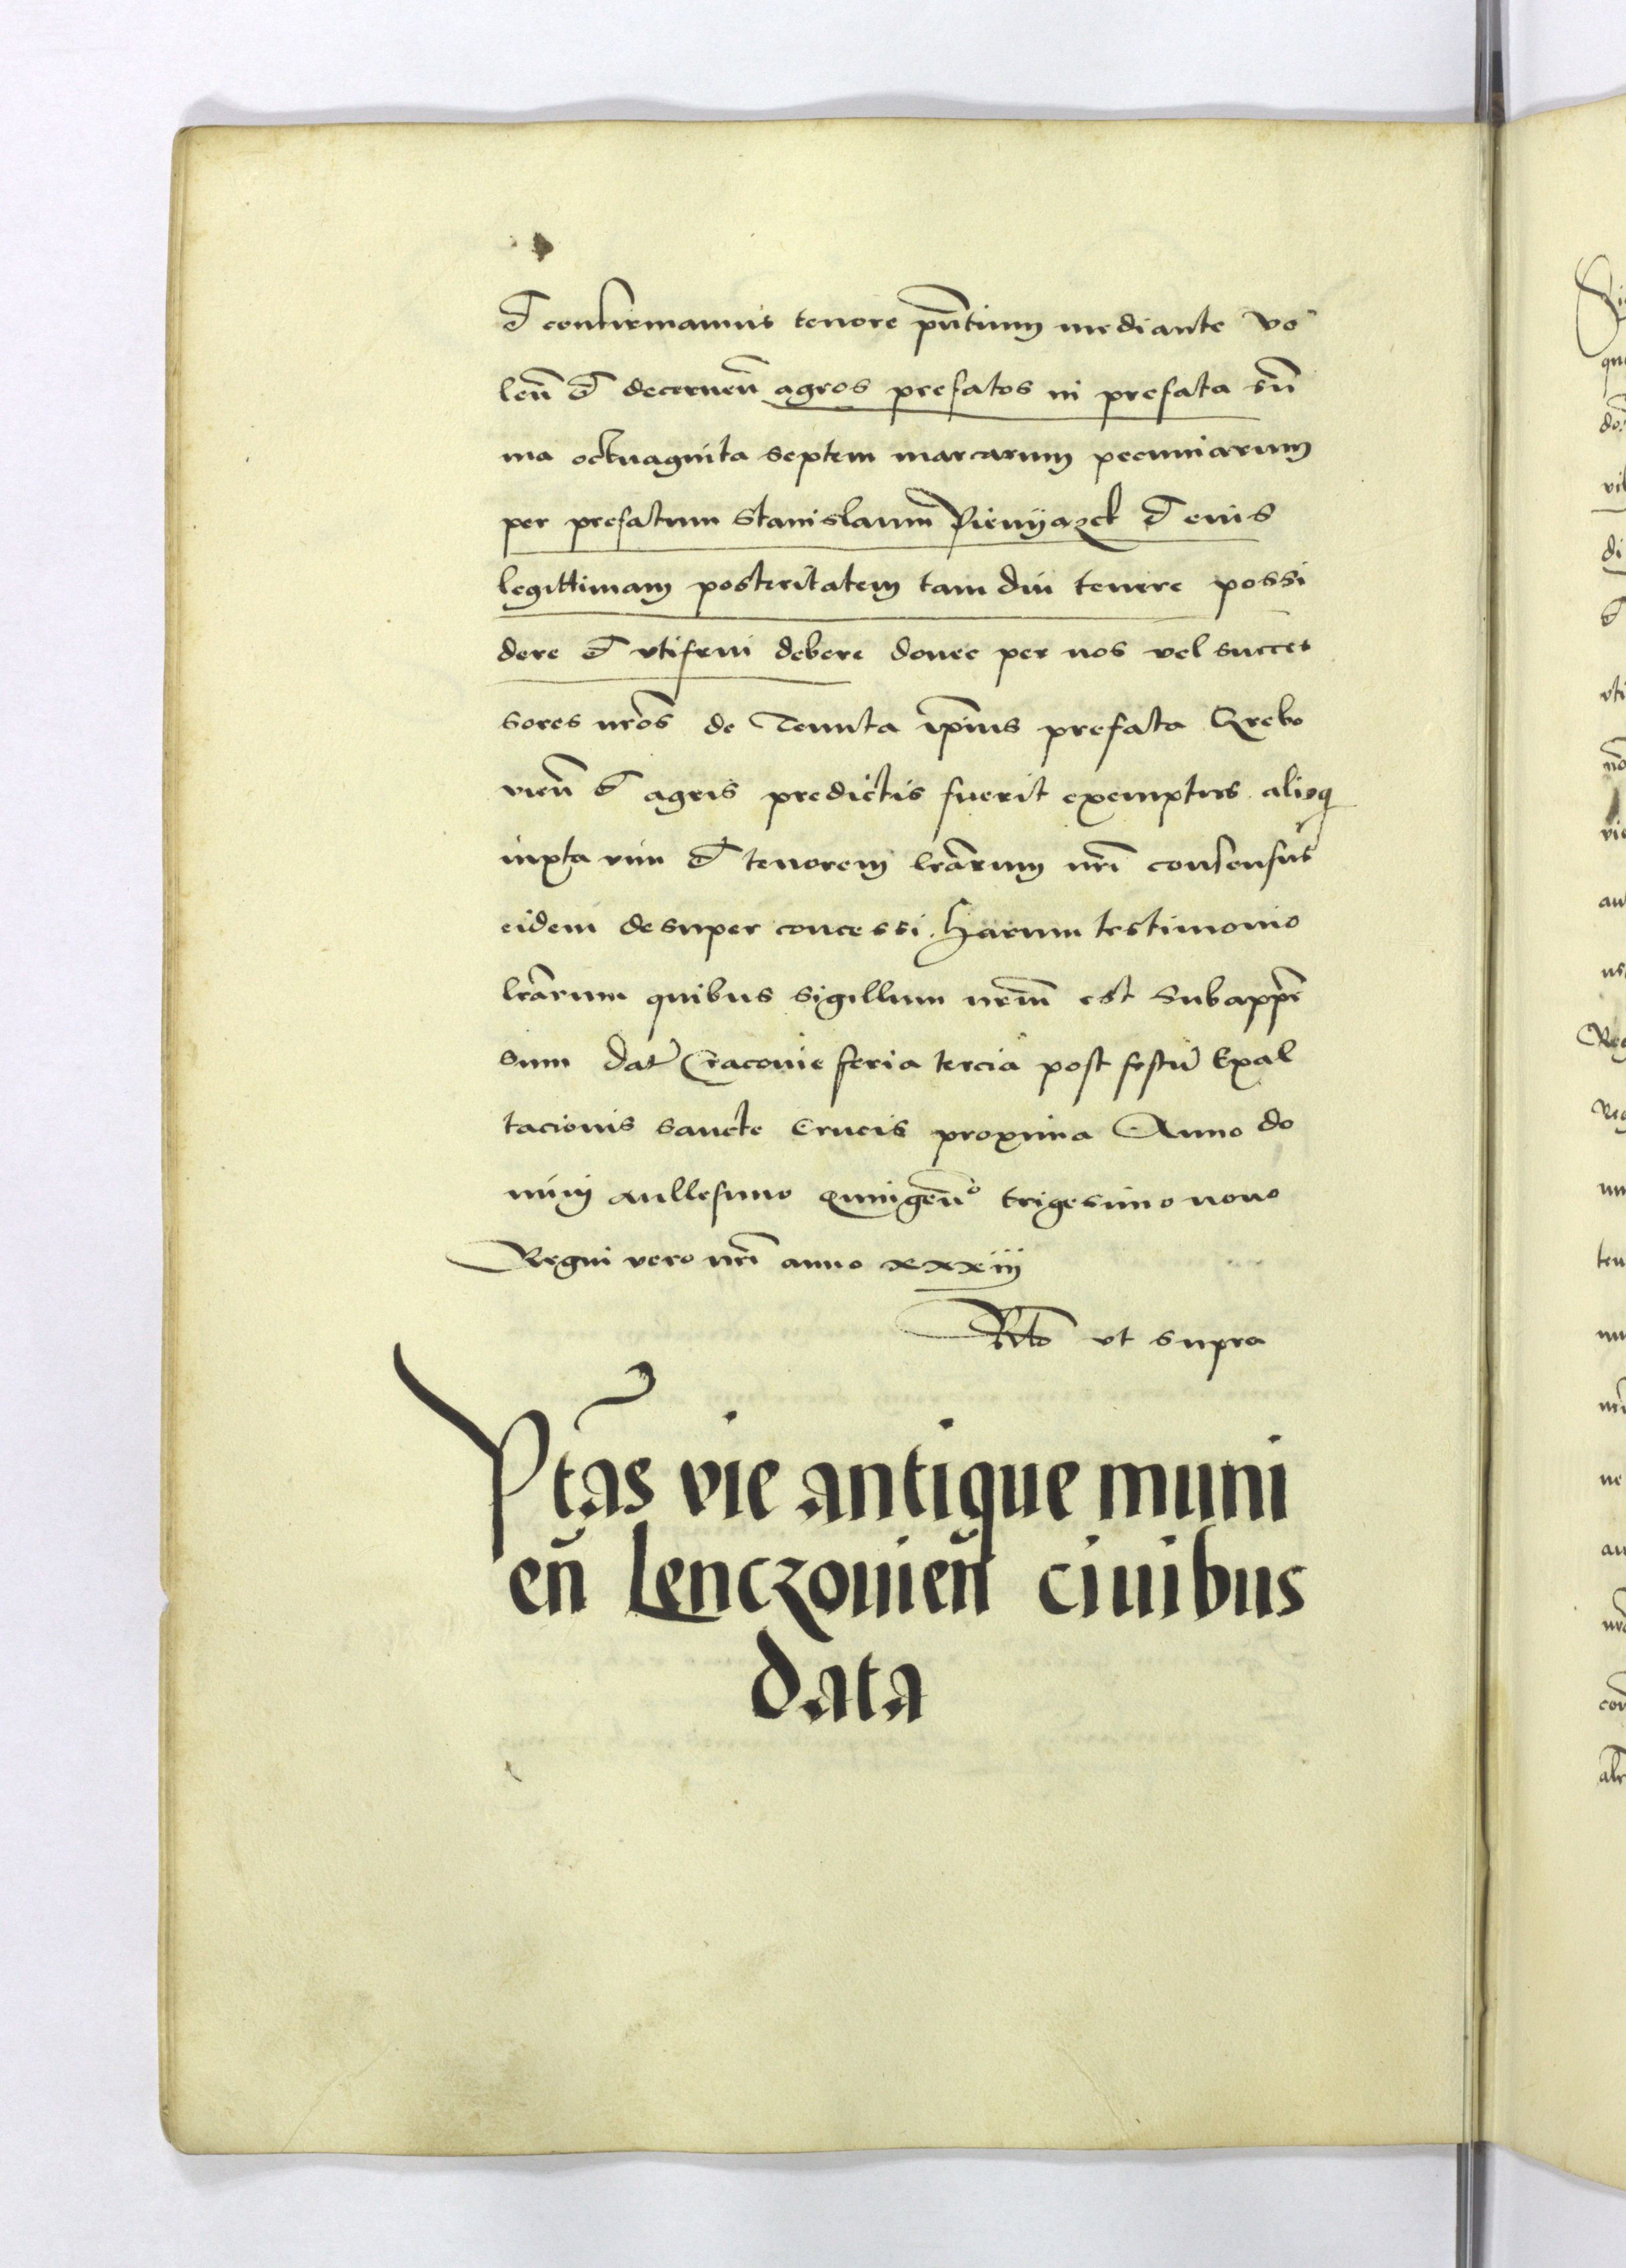 et confirmamus tenore pñtium mediante vo
leñ et decerneñ agros prefatos in prefata sũ
ma octuaginta septem marcarum pecuniarum
per prefatum Stanislaum Pienyazek et eius
legittimam posteritatem tam diu tenere possi
dere et utifrui debere donec per nos vel succes
sores nr̃os de Tenuta ip̃ius prefata Grebo
vieñ et agris predictis fuerit exemptus alioq
iuxta vim et tenorem lr̃arum nr̃i consensus
eidem desuper concessi. Harum testimonio
lr̃arum quibus sigillum nr̃um est subappr̃e
sum Dat̃ Cracovie feria tercia post festũ Exal
tacionis sancte Crucis proxima Anno do
mini millesimo quingeñº trigesimo nono
Regni vero nr̃i anno xxxiij
Rl̃o ut supra
Ptãs vie antique muni
eñ Lenczovieñ civibus
data